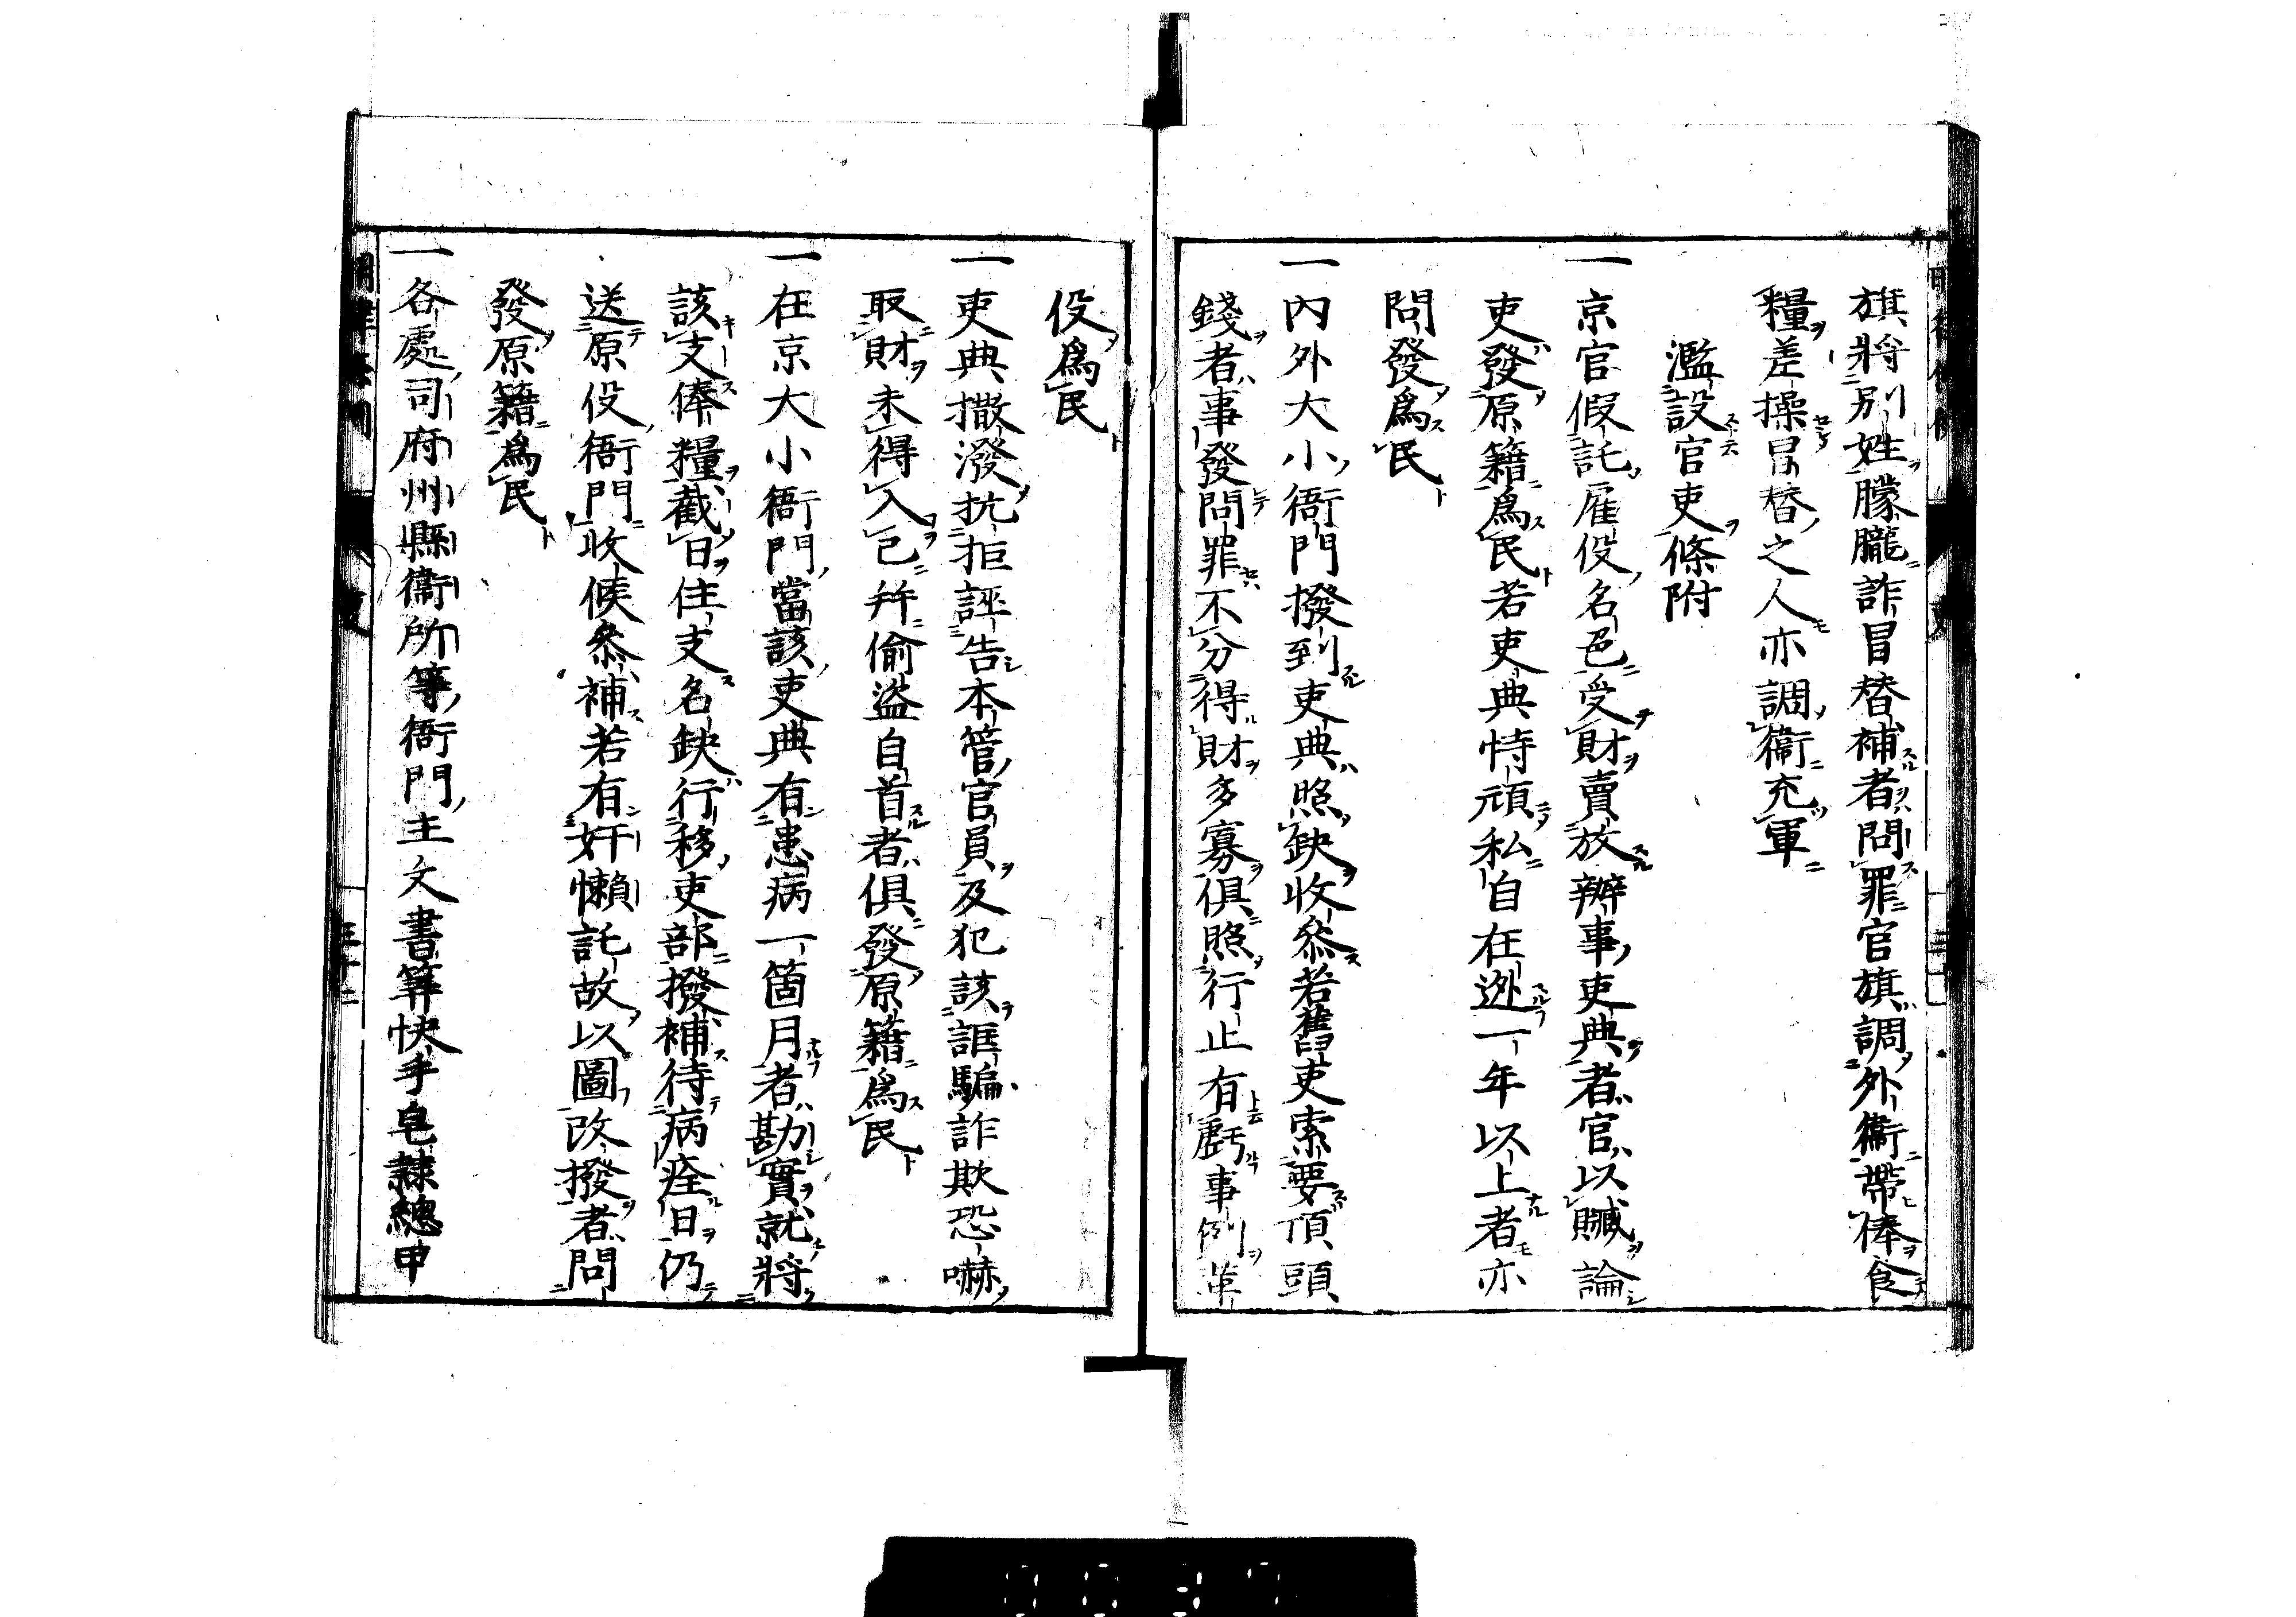 旗將別姓朦朧詐冒替補者問罪官旗調外衞帶俸食
糧差操冒替之人亦調衞充軍
濫設官吏條附
一京官假託雇役名色受財賣放辦事吏典者官以贓論
吏發原籍爲民若吏典恃頑私自在迯一年以上者亦
問發爲民
一內外大小衙門撥到吏典照缺收叅若舊吏索要頂頭
錢者事發問罪不分得財多寡俱照行止有虧事例革
役爲民
一吏典撒潑抗拒誣告本管官員及犯該誆騙詐欺恐嚇
取財未得入己幷偷盜自首者俱發原籍爲民
一在京大小衙門當該吏典有患病一箇月者勘實就將
該支俸糧截日住支名缺行移吏部撥補待病痊日仍
送原役衙門收候叅補若有奸懶託故以圖改撥者問
發原籍爲民
一各處司府州縣衞所等衙門主文書筭快手皂隸總甲